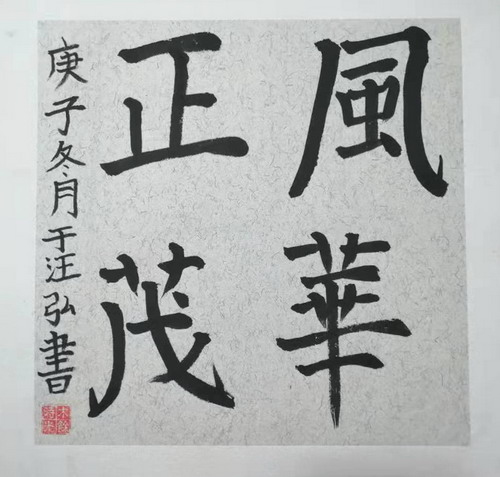 風華
正茂
庚子冬月于汪弘書